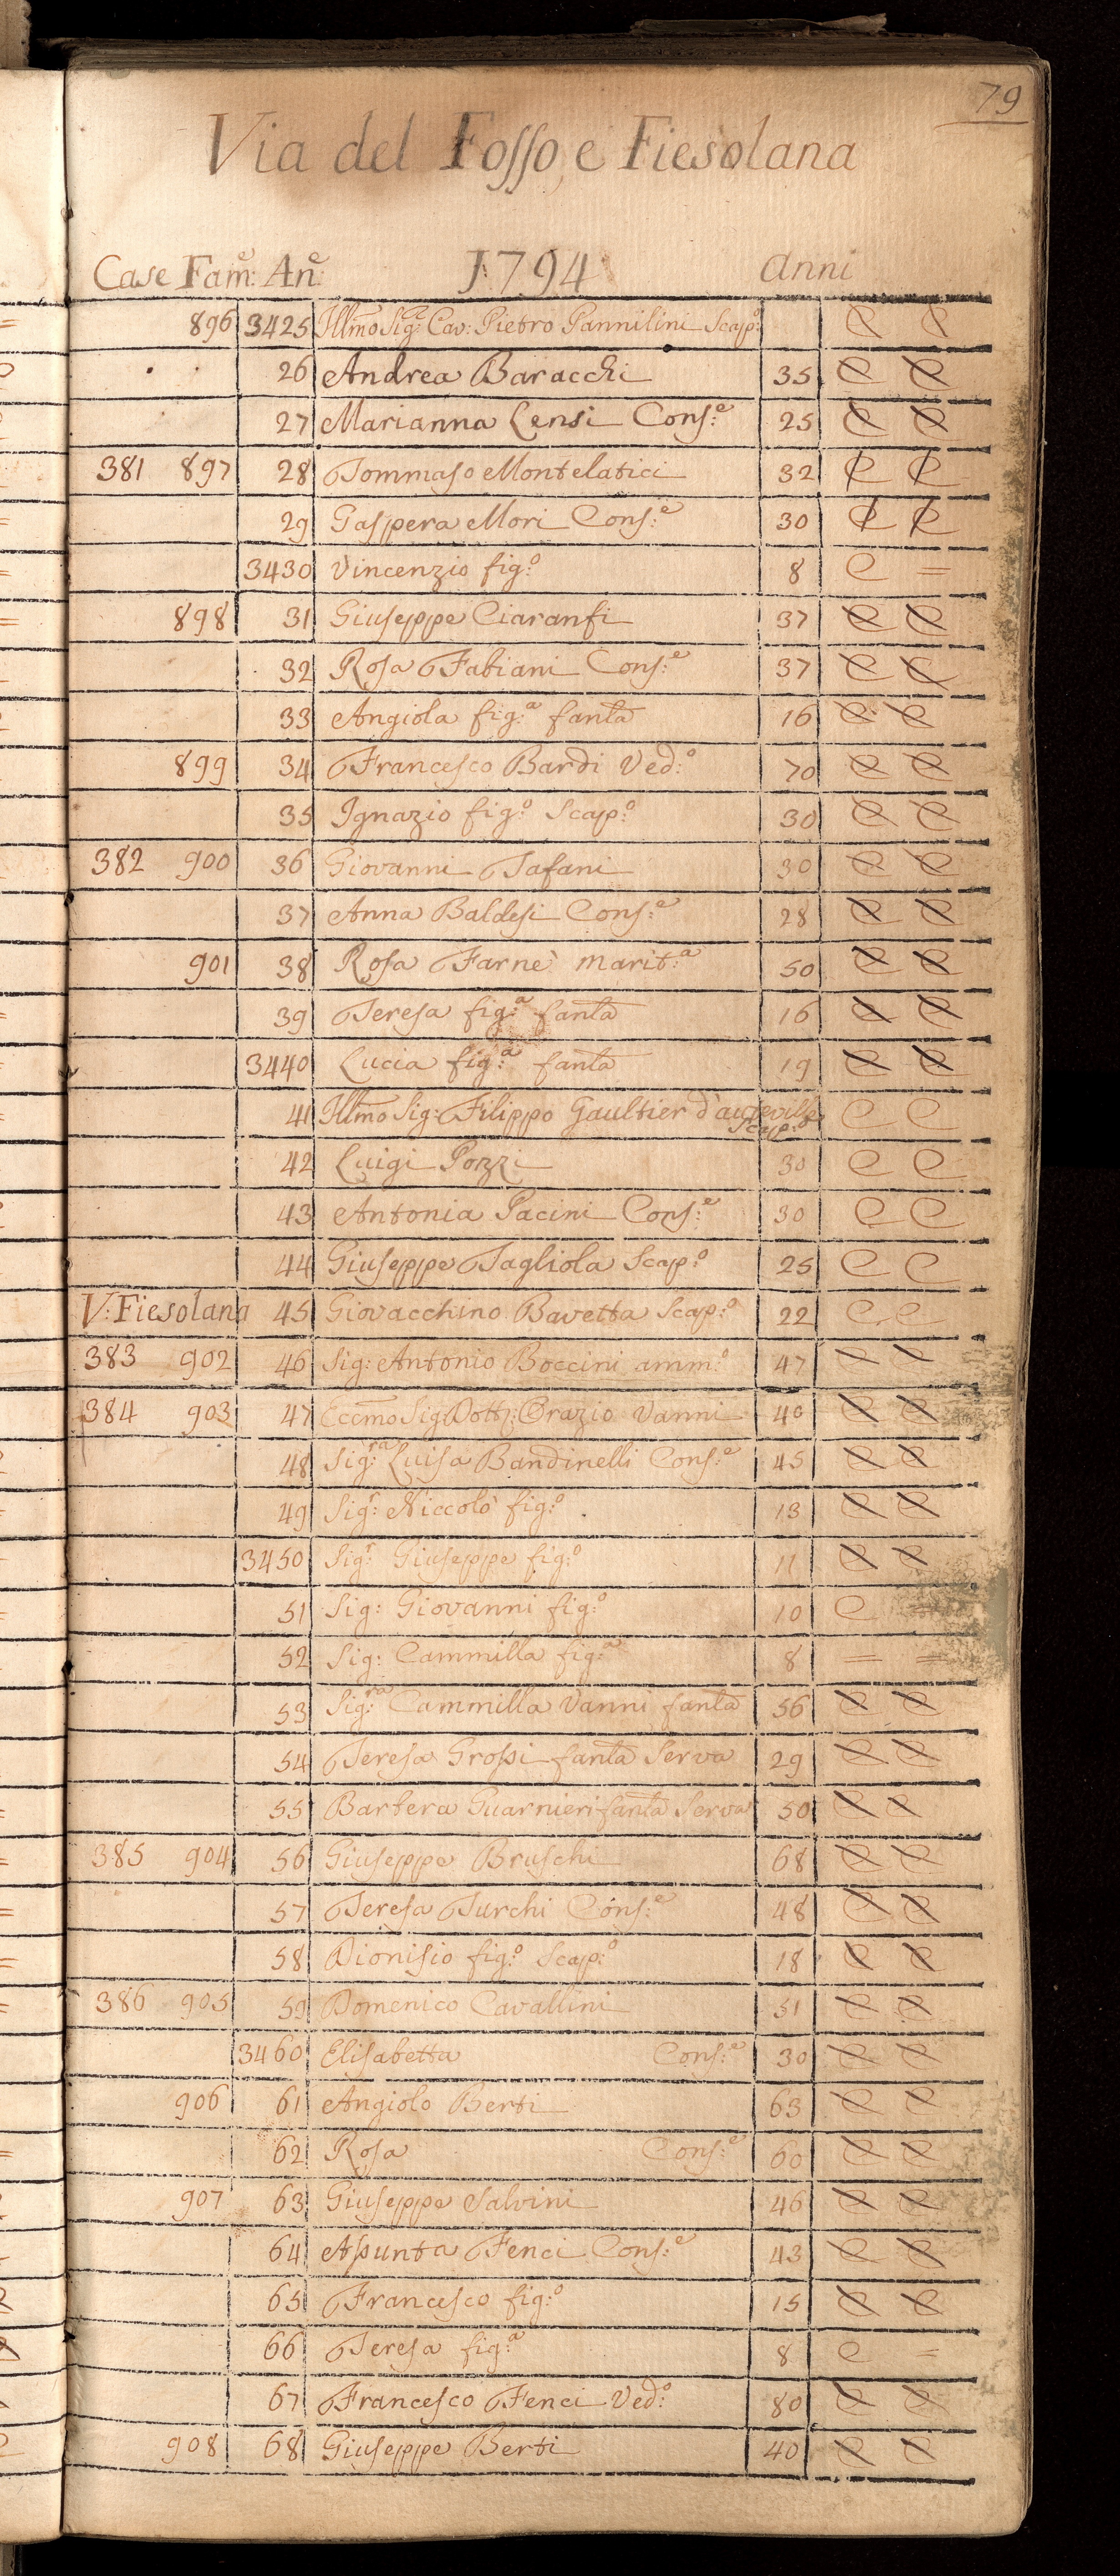 79
Via del Fosso, e Fiesolana
Case Fam:e An:e 1794 anni
896 3425 Illmo Sig:r Cav: Pietro Pannilini Scap:o C C
26 Andrea Baracchi 35 C C
27 Marianna Lensi Cons:e 25 C C
381 897 28 Tommaso Montelatici 32 C C
29 Gaspera Mori Cons:e 30 C C
3430 Vincenzio fig:o 8 C =
898 31 Giuseppe Ciaranfi 37 C C
32 Rosa Fabiani Cons:e 37 C C
33 Angiola fig:a fanla 16 C C
899 34 Francesco Bardi Ved:o 70 C C
35 Ignazio fig:o Scap:o 30 C C
382 900 36 Giovanni Tafani 30 C C
37 Anna Baldesi Cons:e 28 C C
901 38 Rosa Farnè Marit:a 50 C C
39 Teresa fig:a fanla 16 C C
3440 Lucia fig:a fanla 19 C C
41 Illmo Sig: Filippo Gaultier d'auteville Scap:o C C
42 Luigi Pozzi 30 C C
43 Antonia Pacini Cons:e 30 C C
44 Giuseppe Tagliola Scap:o 25 C C
V: Fiesolana 45 Giovacchino Bavetta Scap:o 22 C C
383 902 46 Sig: Antonio Boccini amm:o 47 C C
384 903 47 Eccmo Sig: Dott: Orazio Vanni 40 C C
48 Sig:ra Luisa Bandinelli Cons:e 45 C C
49 Sig:r Niccolò fig:o 13 C C
3450 Sig:r Giuseppe fig:o 11 C C
51 Sig: Giovanni fig:o 10 C =
52 Sig: Cammilla fig:a 8 = =
53 Sig:ra Cammilla Vanni fanla 56 C C
54 Teresa Grossi fanla Serva 29 C C
55 Barbera Guarnieri fanla Serva 50 C C
385 904 56 Giuseppe Bruschi 68 C C
57 Teresa Turchi Cons:e 48 C C
58 Dionisio fig:o Scap:o 18 C C
386 905 59 Domenico Cavallini 51 C C
3460 Elisabetta Cons:e 30 C C
906 61 Angiolo Berti 63 C C
62 Rosa Cons:e 60 C C
907 63 Giuseppe Salvini 46 C C
64 Assunta Fenci Cons:e 43 C C
65 Francesco fig:o 15 C C
66 Teresa fig:a 8 C =
67 Francesco Fenci Ved:o 80 C C
908 68 Giuseppe Berti 40 C C